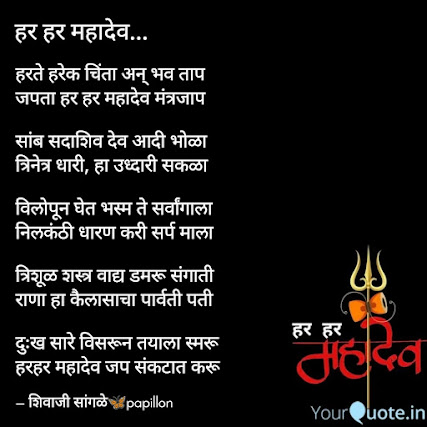 हर हर महादेव...
हरते हरेक चिंता अन् भव ताप
जपता हर हर महादेव मंत्रजाप
सांब सदाशिव देव आदी भोळा
त्रिनेत्र धारी, हा उध्दारी सकळा
विलोपून घेत भस्म ते सर्वांगाला
निलकंठी धारण करी सर्प माला
त्रिशूळ शस्त्र वाद्य डमरू संगाती
राणा हा कैलासाचा पार्वती पती
दुःख सारे विसरून तयाला स्मरू
हरहर महादेव जप संकटात करू
– शिवाजी सांगळे🦋papillon
हर हर
महादेव
YourQuote.in